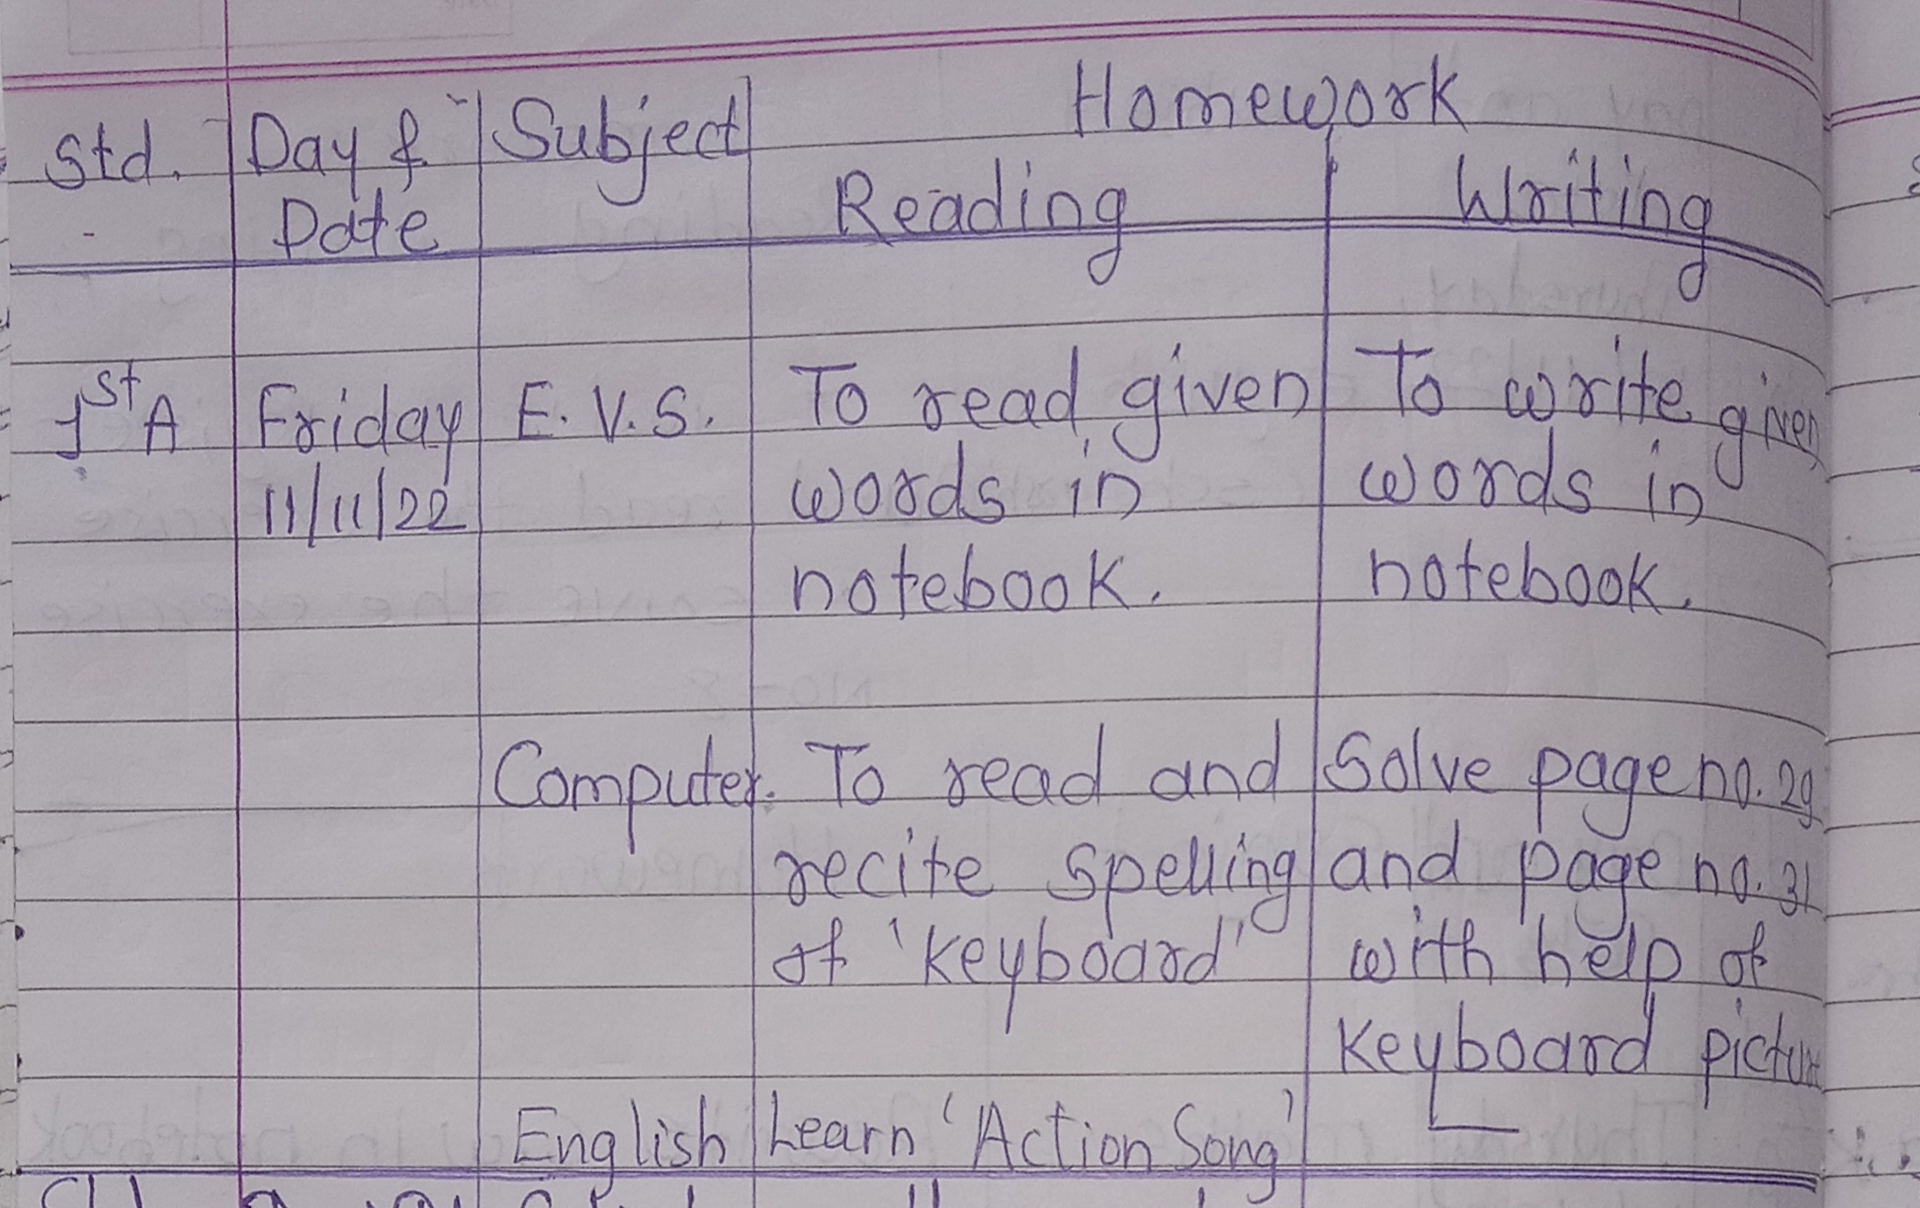 Homework
Std. Day & Subject
Date Reading Writing
1st A Friday E.V.S. To read given To write given
11/11/22 words in words in
notebook. notebook.
Computer. To read and Solve page no. 29
recite spelling and page no. 31
of 'keyboard' with help of
keyboard picture
English Learn 'Action Song'